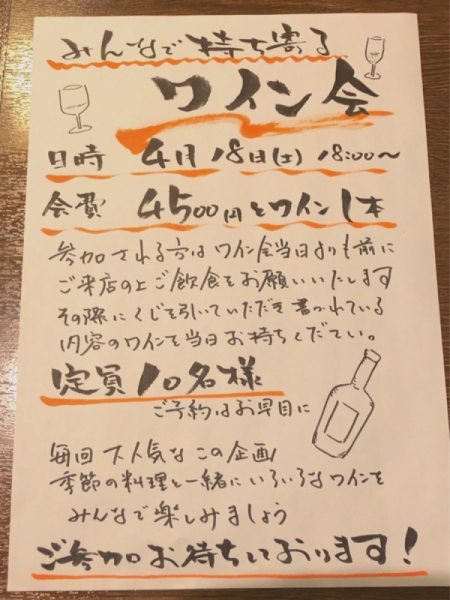 みんなで持ち寄る
ワイン会
日時 4月18日(土) 18:00〜
会費 4500円とワイン1本
参加される方はワイン会当日よりも前に
ご来店の上ご飲食をお願いいたします
その際にくじを引いていただき書かれている
内容のワインを当日お持ちください。
定員10名様
ご予約はお早目に
毎回大人気なこの企画
季節の料理と一緒にいろいろなワインを
みんなで楽しみましょう
ご参加お待ちしております!